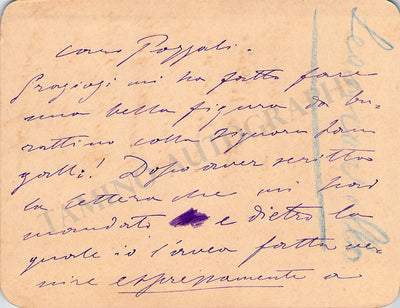 caro Pozzali.
mi ha fatto fare
una bella figura da bu-
rattino colla Signora San
galli! Dopo aver scritto
la lettera che mi hai
mandato e dietro la
quale io l'avea fatta ve-
nire espressamente a
TAMINO AUTOGRAPHS